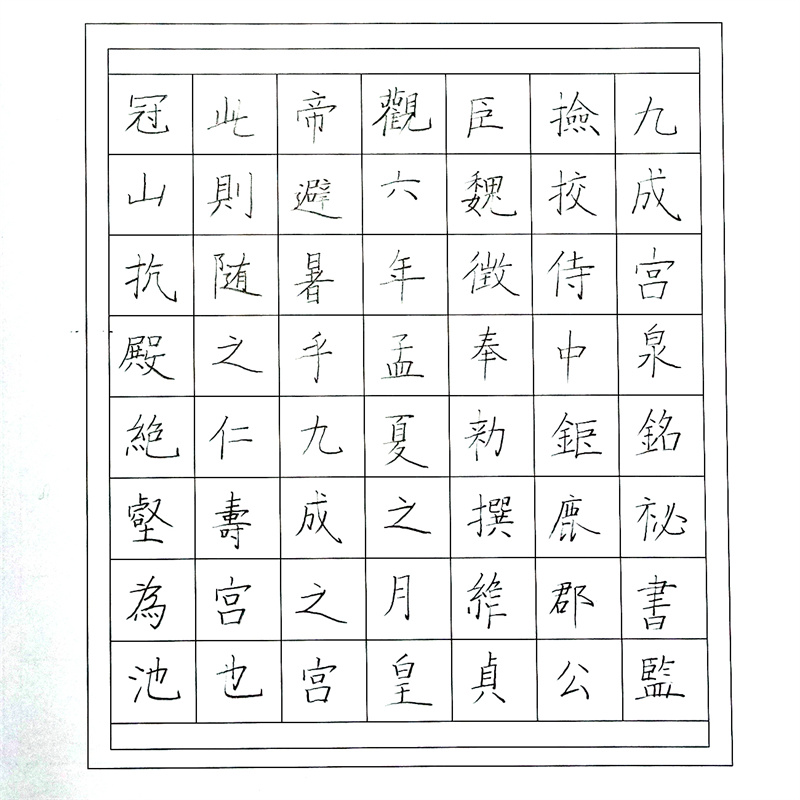 九成宮泉銘祕書監
撿挍侍中鉅鹿郡公
臣魏徵奉勑撰維貞
觀六年孟夏之月皇
帝避暑乎九成之宮
此則随之仁壽宮也
冠山抗殿絶壑為池